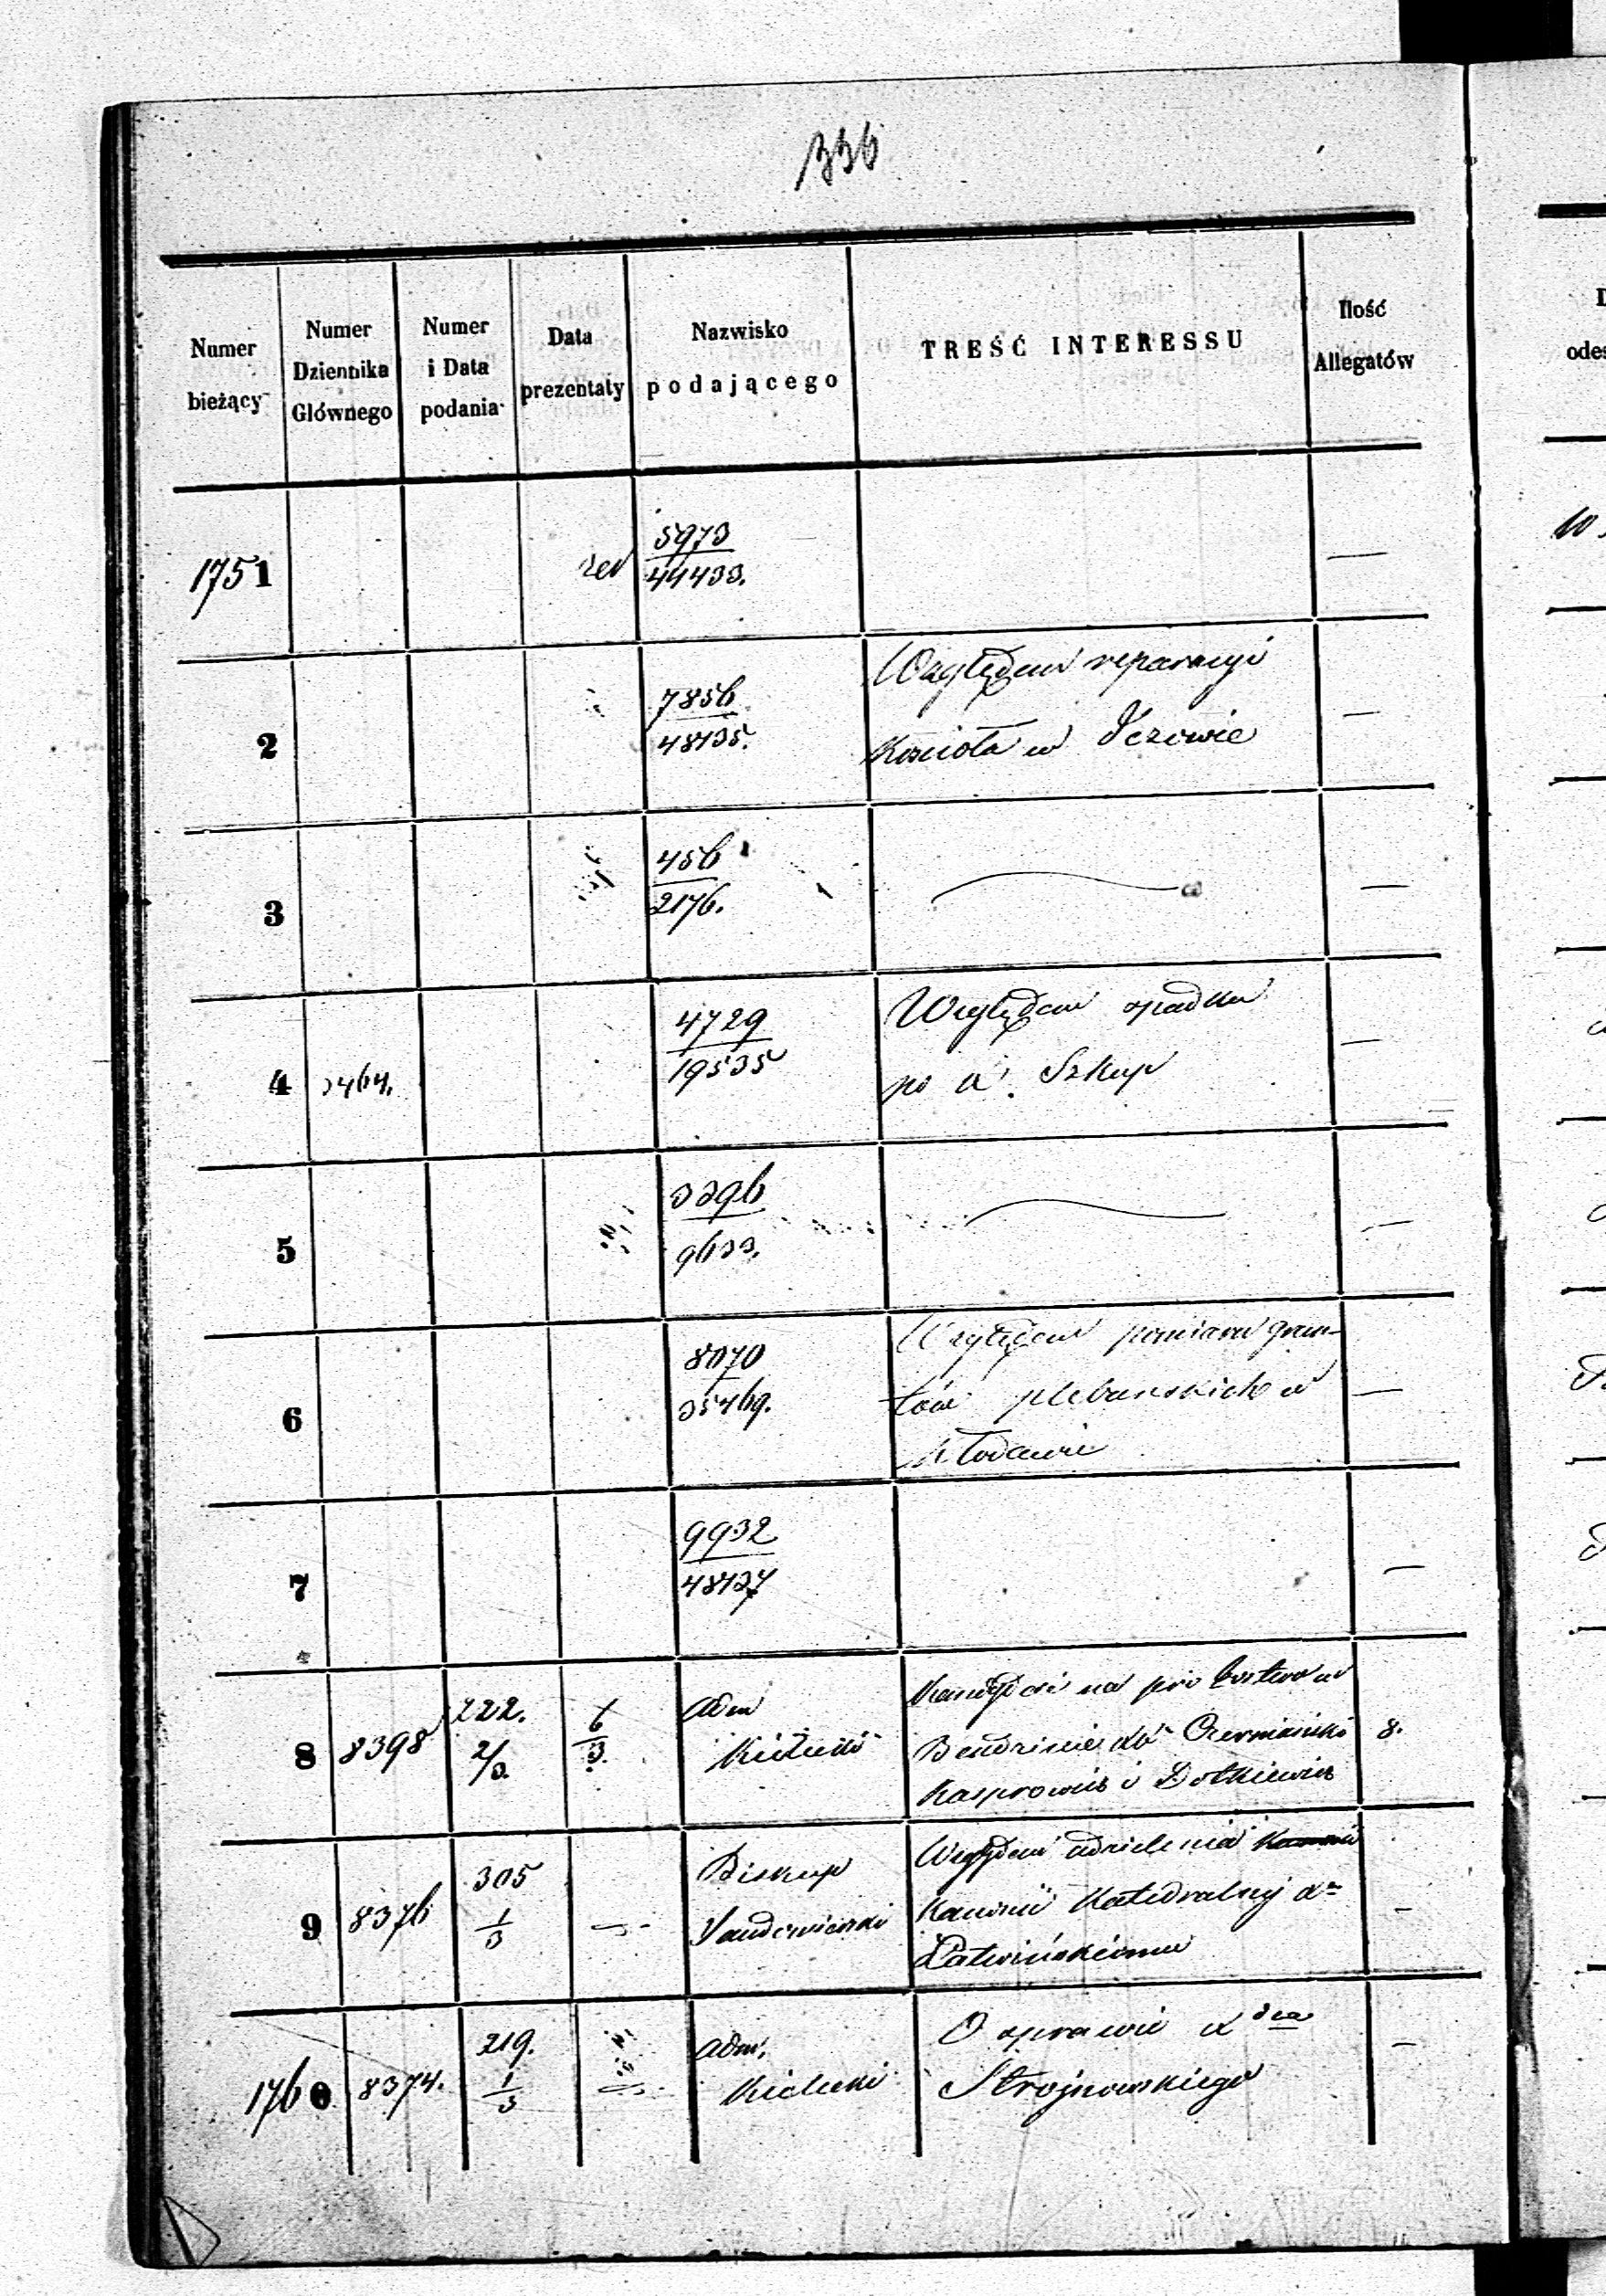 336
Numer bieżący
Numer Dziennika Głównego
Numer i Data podania
Data prezentaty
Nazwisko podającego
TREŚĆ INTERESSU
Ilość Allegatów
1751 rev 5973
44433. —
2 7856
48435.
Względem reparacyi
Kościoła w Jeżowie —
3 456
2176. —
4 3464. 4729
19535
Względem spadku
po X. Szkup —
5 3296
9633. —
6 8070
35469.
Względem pomiaru grun-
tów plebańskich w
Kłodawie —
7 9932
48427 —
8 8398 222.
2/3. 6/3. Adm
Kielecki
na probostwo w
Bendzinie
Kasprowicz i 8.
9 8376 305
1/3 Biskup
Sandomierski
Względem udzielenia
Kanonii Katedralnej Xu
—
1760 8374. 219.
1/3 Adm.
Kielecki
O sprawie Xdza
Strojnowskiego —